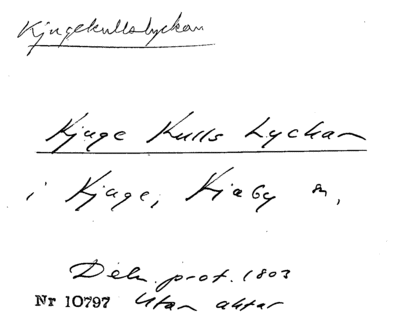 Kjugekullslyckan
Kjuge Kulls Lyckan
i Kjuge, Kiaby sn,
Dek. prot. 1803
Nr 10797 Utan aktar